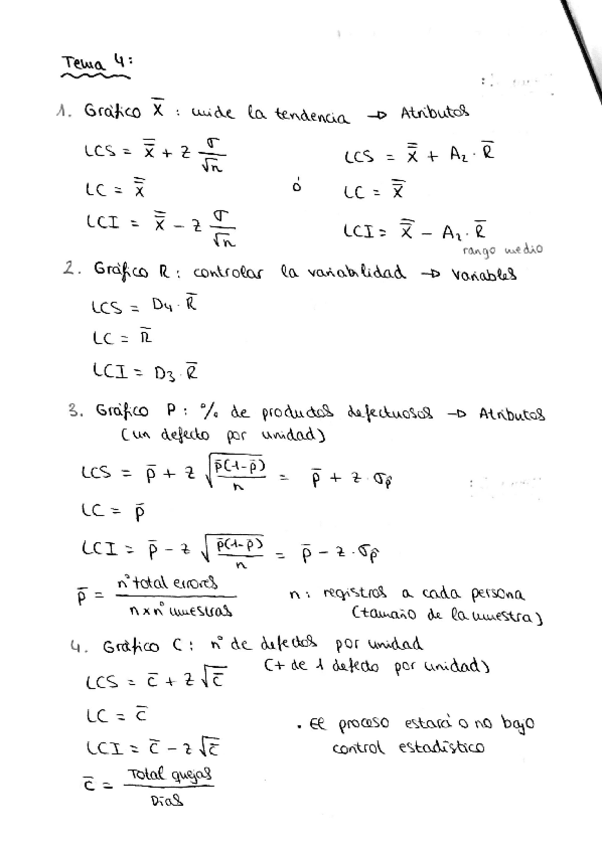 Tema 4:
1. Gráfico X̄ : mide la tendencia → Atributos
LCS = X̿ + Z σ/√n
LCS = X̿ + A₂ · R̄
LC = X̿
ó
LC = X̿
LCI = X̿ - Z σ/√n
LCI = X̿ - A₂ · R̄
rango medio
2. Gráfico R : controlar la variabilidad → Variables
LCS = D₄ · R̄
LC = R̄
LCI = D₃ · R̄
3. Gráfico P : % de productos defectuosos → Atributos
(un defecto por unidad)
LCS = p̄ + Z √(p̄(1-p̄)/n) = p̄ + Z · σp̂
LC = p̄
LCI = p̄ - Z √(p̄(1-p̄)/n) = p̄ - Z · σp̂
p̄ = nº total errores / n x nº muestras
n : registros a cada persona
(tamaño de la muestra)
4. Gráfico C : nº de defectos por unidad
(+ de 1 defecto por unidad)
LCS = c̄ + Z√c̄
LC = c̄
LCI = c̄ - Z√c̄
c̄ = Total quejas / Días
. El proceso estará o no bajo
control estadístico